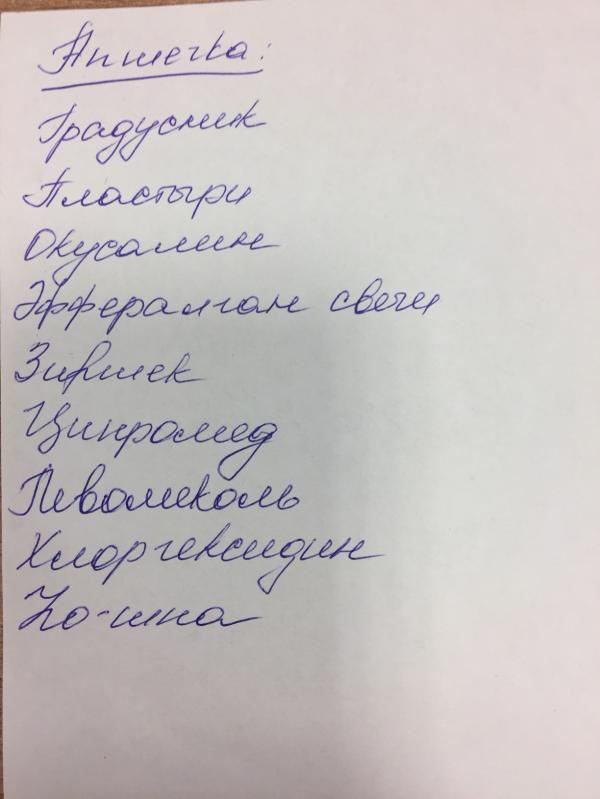 Аптечка:
Градусник
Пластыри
Окусалин
Эффералган свечи
Зиртек
Ципромед
Левомеколь
Хлоргексидин
Но-шпа